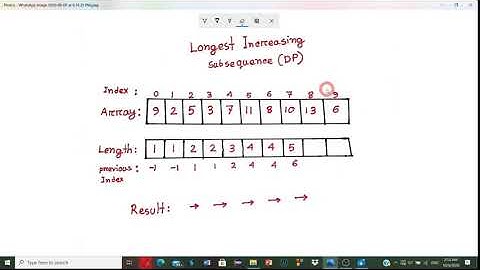 Photos - WhatsApp Image 2020-
Longest Increasing
Subsequence (DP)
Index: 0 1 2 3 4 5 6 7 8 9
Array: 9 2 5 3 7 11 8 10 13 6
Length: 1 1 2 2 3 4 4 5
previous Index: -1 -1 1 1 2 4 4 6
Result: → → → → →
Type here to search